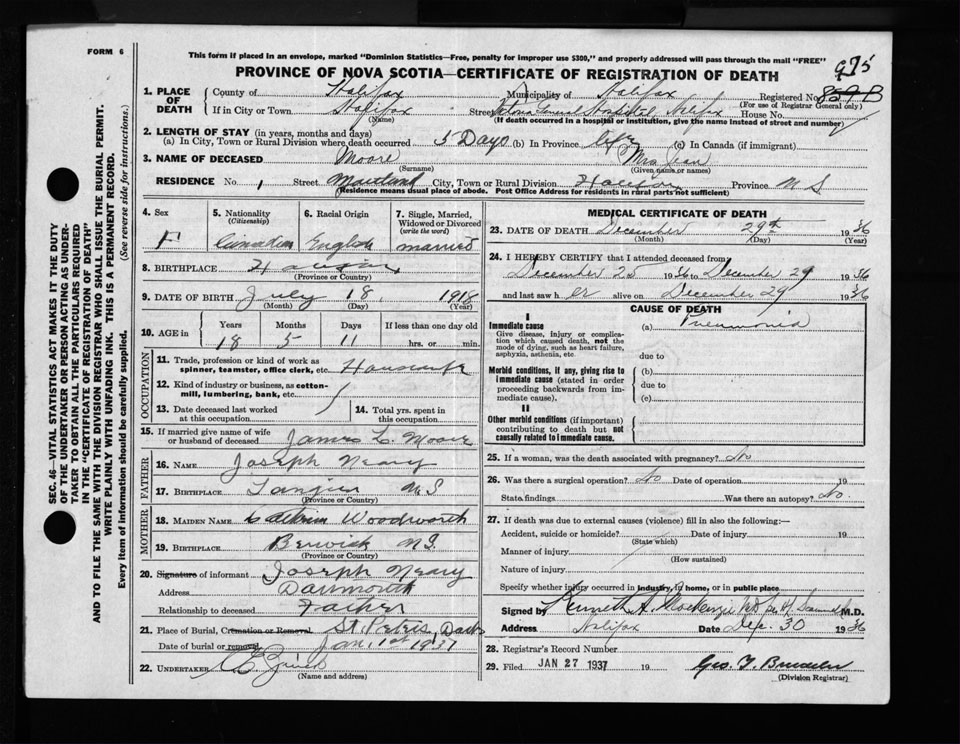 FORM 6
This form if placed in an envelope, marked "Dominion Statistics—Free, penalty for improper use $300," and properly addressed will pass through the mail "FREE"
975
PROVINCE OF NOVA SCOTIA—CERTIFICATE OF REGISTRATION OF DEATH
1. PLACE OF DEATH County of Halifax Municipality of Halifax Registered No. 859 B
(For use of Registrar General only)
If in City or Town Halifax Street Victoria General Hospital, Halifax House No.
(Name) (If death occurred in a hospital or institution, give the name instead of street and number)
2. LENGTH OF STAY (in years, months and days)
(a) In City, Town or Rural Division where death occurred 5 Days (b) In Province life (c) In Canada (if immigrant)
3. NAME OF DECEASED Moore Mrs Jean
(Surname) (Given name or names)
RESIDENCE No. 1 Street Maitland City, Town or Rural Division Province N S
(Residence means usual place of abode. Post Office Address for residents in rural parts not sufficient)
4. Sex F
5. Nationality (Citizenship) Canadian
6. Racial Origin English
7. Single, Married, Widowed or Divorced (write the word) married
8. BIRTHPLACE Halifax
(Province or Country)
9. DATE OF BIRTH July 18, 1918
(Month) (Day) (Year)
10. AGE in Years Months Days If less than one day old
18 5 11 hrs. or min.
OCCUPATION
11. Trade, profession or kind of work as spinner, teamster, office clerk, etc. Housewife
12. Kind of industry or business, as cotton-mill, lumbering, bank, etc.
13. Date deceased last worked at this occupation
14. Total yrs. spent in this occupation
15. If married give name of wife or husband of deceased James L. Moore
FATHER
16. NAME Joseph Neary
17. BIRTHPLACE Tangier N S
(Province or Country)
MOTHER
18. MAIDEN NAME Woodworth
19. BIRTHPLACE Berwick N.S.
(Province or Country)
20. Signature of informant Joseph Neary
Address Dartmouth
Relationship to deceased Father
21. Place of Burial, Cremation or Removal St. Peters, Dart
Date of burial or removal Jan. 1st 1937
22. UNDERTAKER
(Name and address)
MEDICAL CERTIFICATE OF DEATH
23. DATE OF DEATH December 29th 1936
(Month) (Day) (Year)
24. I HEREBY CERTIFY that I attended deceased from
December 25 1936 to December 29 1936
and last saw her alive on December 29 1936
CAUSE OF DEATH
I
Immediate cause (a) Pneumonia
Give disease, injury or complication which caused death, not the mode of dying, such as heart failure, asphyxia, asthenia, etc.
due to
Morbid conditions, if any, giving rise to immediate cause (stated in order proceeding backwards from immediate cause).
(b)
due to
(c)
II
Other morbid conditions (if important) contributing to death but not causally related to immediate cause.
25. If a woman, was the death associated with pregnancy? No
26. Was there a surgical operation? No Date of operation 19
State findings Was there an autopsy? No
27. If death was due to external causes (violence) fill in also the following:—
Accident, suicide or homicide? Date of injury 19
(State which)
Manner of injury
(How sustained)
Nature of injury
Specify whether injury occurred in industry, in home, or in public place
Signed by Kenneth A. MacKenzie M.D.
Address Halifax Date Dec. 30 1936
28. Registrar's Record Number
29. Filed JAN 27 1937 19
(Division Registrar)
SEC. 46—VITAL STATISTICS ACT MAKES IT THE DUTY
OF THE UNDERTAKER OR PERSON ACTING AS UNDER-
TAKER TO OBTAIN ALL THE PARTICULARS REQUIRED
IN THE "CERTIFICATE OF REGISTRATION OF DEATH"
AND TO FILE THE SAME WITH THE DIVISION REGISTRAR WHO SHALL ISSUE THE BURIAL PERMIT.
WRITE PLAINLY WITH UNFADING INK. THIS IS A PERMANENT RECORD.
Every item of information should be carefully supplied. (See reverse side for instructions.)